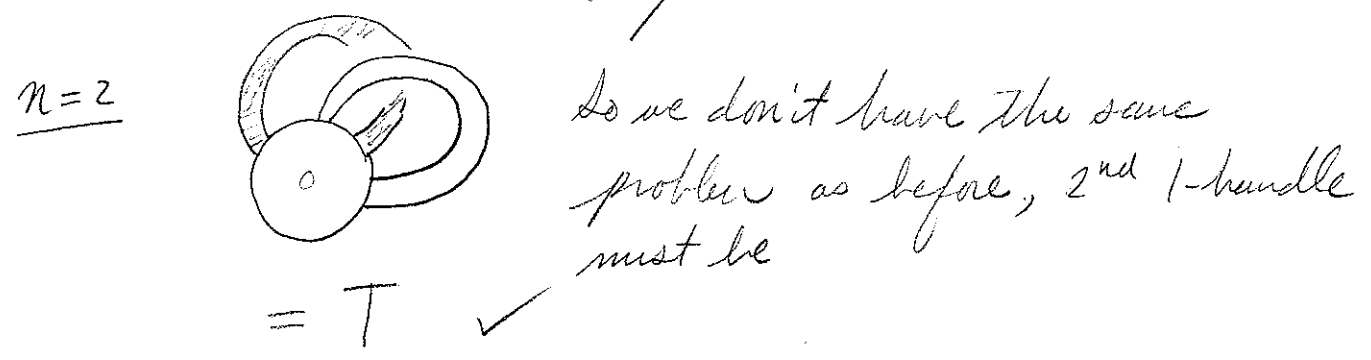 n=2
So we don't have the same
problem as before, 2nd 1-handle
must be
0
= T ✓